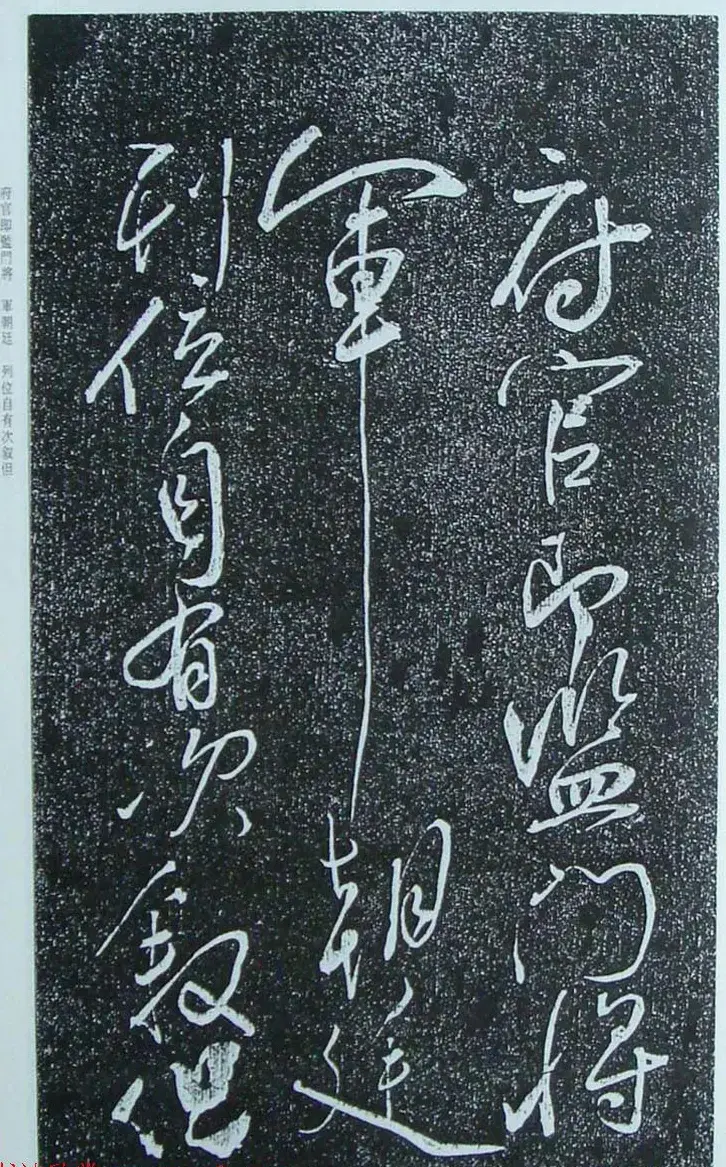 府官即監門將
軍朝廷
列位自有次叙但
府官即監門將 軍朝廷 列位自有次叙但